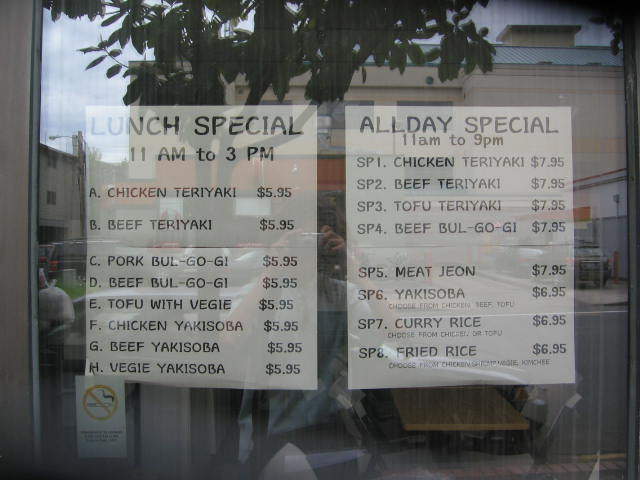 LUNCH SPECIAL
11 AM to 3 PM
A. CHICKEN TERIYAKI $5.95
B. BEEF TERIYAKI $5.95
C. PORK BUL-GO-GI $5.95
D. BEEF BUL-GO-GI $5.95
E. TOFU WITH VEGIE $5.95
F. CHICKEN YAKISOBA $5.95
G. BEEF YAKISOBA $5.95
H. VEGIE YAKISOBA $5.95
ALLDAY SPECIAL
11am to 9pm
SP1. CHICKEN TERIYAKI $7.95
SP2. BEEF TERIYAKI $7.95
SP3. TOFU TERIYAKI $7.95
SP4. BEEF BUL-GO-GI $7.95
SP5. MEAT JEON $7.95
SP6. YAKISOBA $6.95
CHOOSE FROM CHICKEN, BEEF, TOFU
SP7. CURRY RICE $6.95
CHOOSE FROM CHICKEN OR TOFU
SP8. FRIED RICE $6.95
CHOOSE FROM CHICKEN, SHRIMP, VEGIE, KIMCHEE